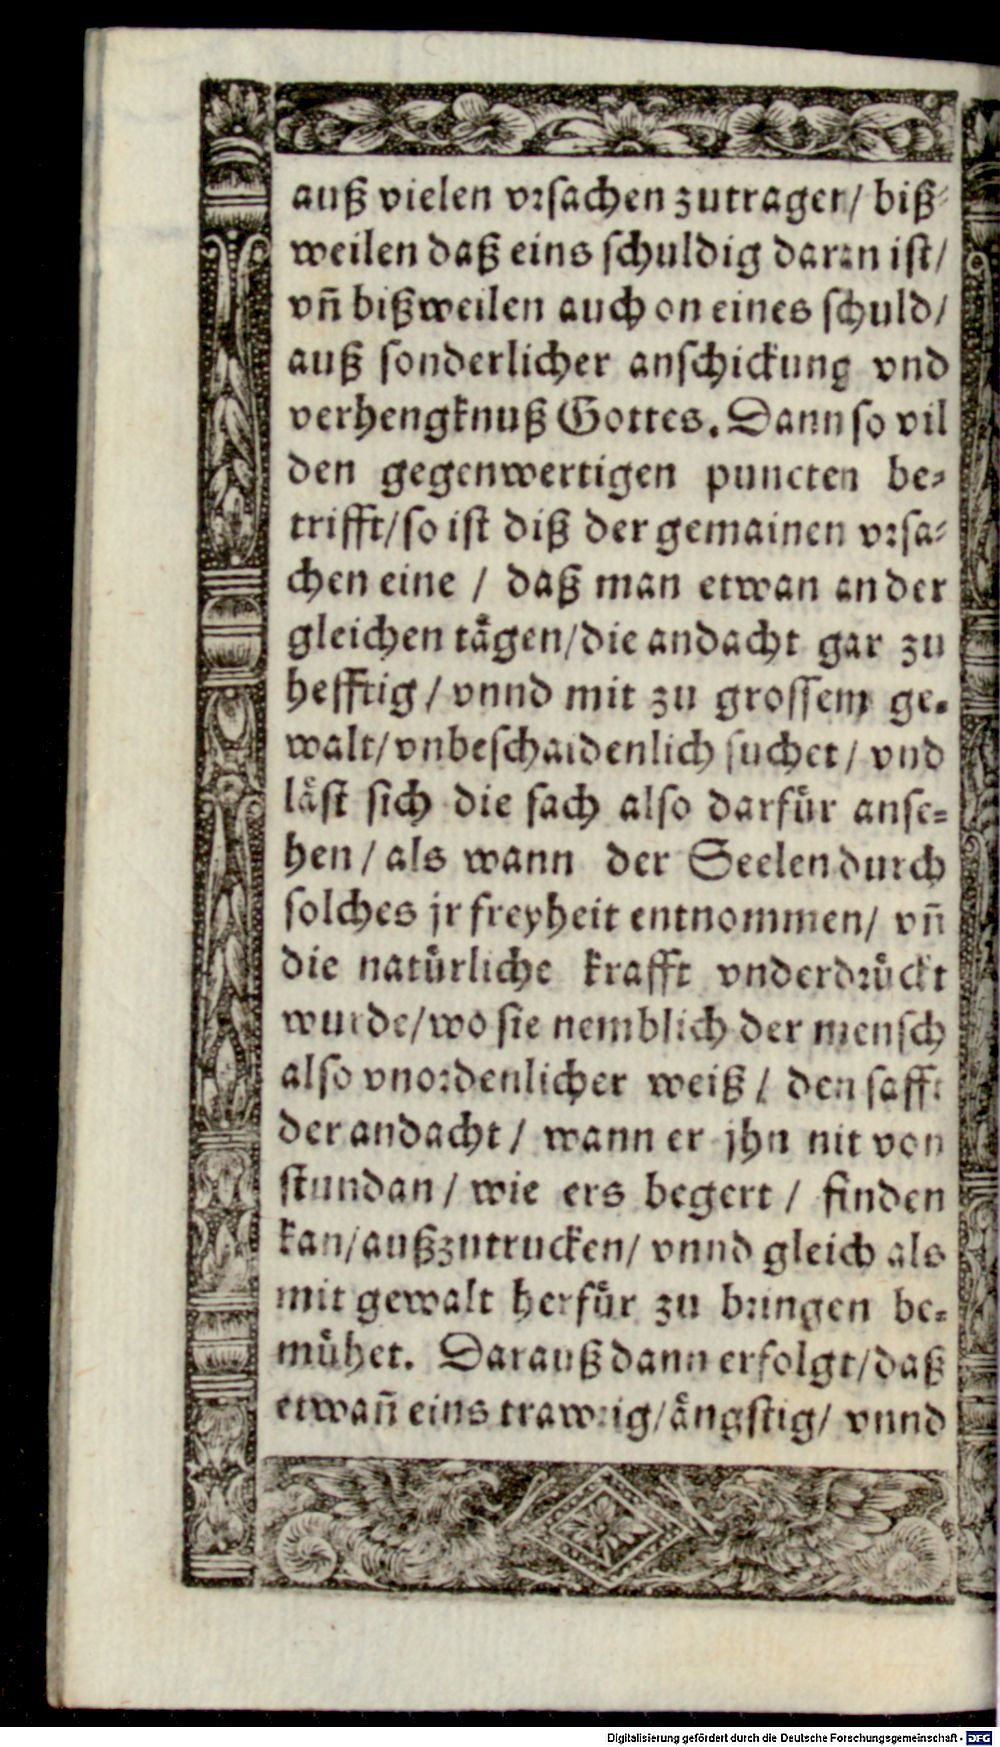 auß vielen vrsachen zutragen/ biß-
weilen daß eins schuldig daran ist/
vñ bißweilen auch on eines schuld/
auß sonderlicher anschickung vnd
verhengknuß Gottes. Dann so vil
den gegenwertigen puncten be-
trifft/so ist diß der gemainen vrsa-
chen eine / daß man etwan an der
gleichen tågen/die andacht gar zu
hefftig / vnnd mit zu grossem ge-
walt/ vnbeschaidenlich suchet / vnd
låst sich die sach also darfůr anse-
hen / als wann der Seelen durch
solches jr freyheit entnommen/ vñ
die natůrliche krafft vnderdrůckt
wurde/wo sie nemblich der mensch
also vnordenlicher weiß / den safft
der andacht / wann er jhn nit von
stundan / wie ers begert / finden
kan/außzutrucken/ vnnd gleich als
mit gewalt herfůr zu bringen be-
můhet. Darauß dann erfolgt/daß
etwañ eins trawrig/ångstig/ vnnd
Digitalisierung gefördert durch die Deutsche Forschungsgemeinschaft - DFG